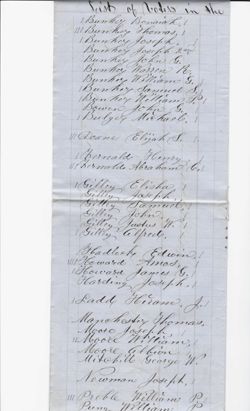 List of Voters in the
Bunker Benniah
Bunker Thomas,
Bunker Joseph
Bunker Joseph 2nd
Bunker John G.
Bunker Warren K.
Bunker William G.
Bunker Samuel S.
Bunker William P.
Bowen John A.
Bulger Michael.
Doane Elijah S.
Fernald Henry,
Fernald Abraham C.
Gilley Elisha
Gilley Joseph
Gilley Samuel
Gilley John
Gilley Justus W.
Gilley Alfred,
Hadlock Edwin
Howard Amos,
Howard James G.
Harding Joseph,
Ladd Hiram, J.
Manchester Thomas,
Moore Joseph
Moore William,
Moore Gibbion
Mitchell George W.
Newman Joseph,
Preble William P.
William P.